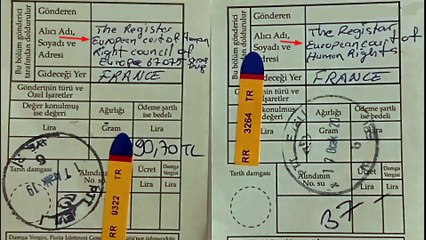 Bu bölüm gönderici
tarafından doldurulur
Gönderen
Alıcı Adı,
Soyadı ve
Adresi
The Registar
European court of Human
Right council of
Europe 67075
Gideceği Yer
FRANCE
Gönderinin türü ve
Özel İşaretler
Değer konulmuş
ise değeri
Ağırlığı
Ödeme şartlı
ise bedeli
Lira
Gram
Lira
90,70 TL
Tarih damgası
Alındının
No. su
Ücret
Damga
Vergisi
Lira
Lira
RR 9322 TR
Bu bölüm gönderici
tarafından doldurulur
Gönderen
Alıcı Adı,
Soyadı ve
Adresi
The Registar
European court of
Human Rights
Gideceği Yer
FRANCE
Gönderinin türü ve
Özel İşaretler
Değer konulmuş
ise değeri
Ağırlığı
Ödeme şartlı
ise bedeli
Lira
Gram
Lira
RR 3264 TR
Tarih damgası
Alındının
No. su
Ücret
Damga
Vergisi
Lira
Lira